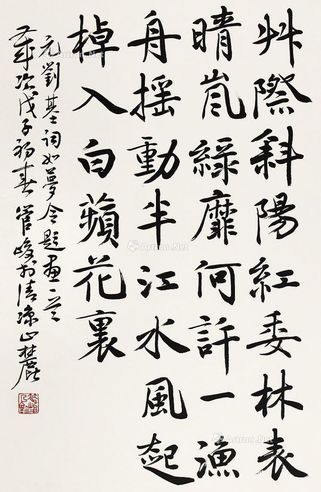 艸際斜陽紅委林表
晴嵐綠靡何許一漁
舟摇動半江水風起
棹入白蘋花裏
元劉基詞如夢令題畫一首
歲次戊子初春管峻於清涼山麓